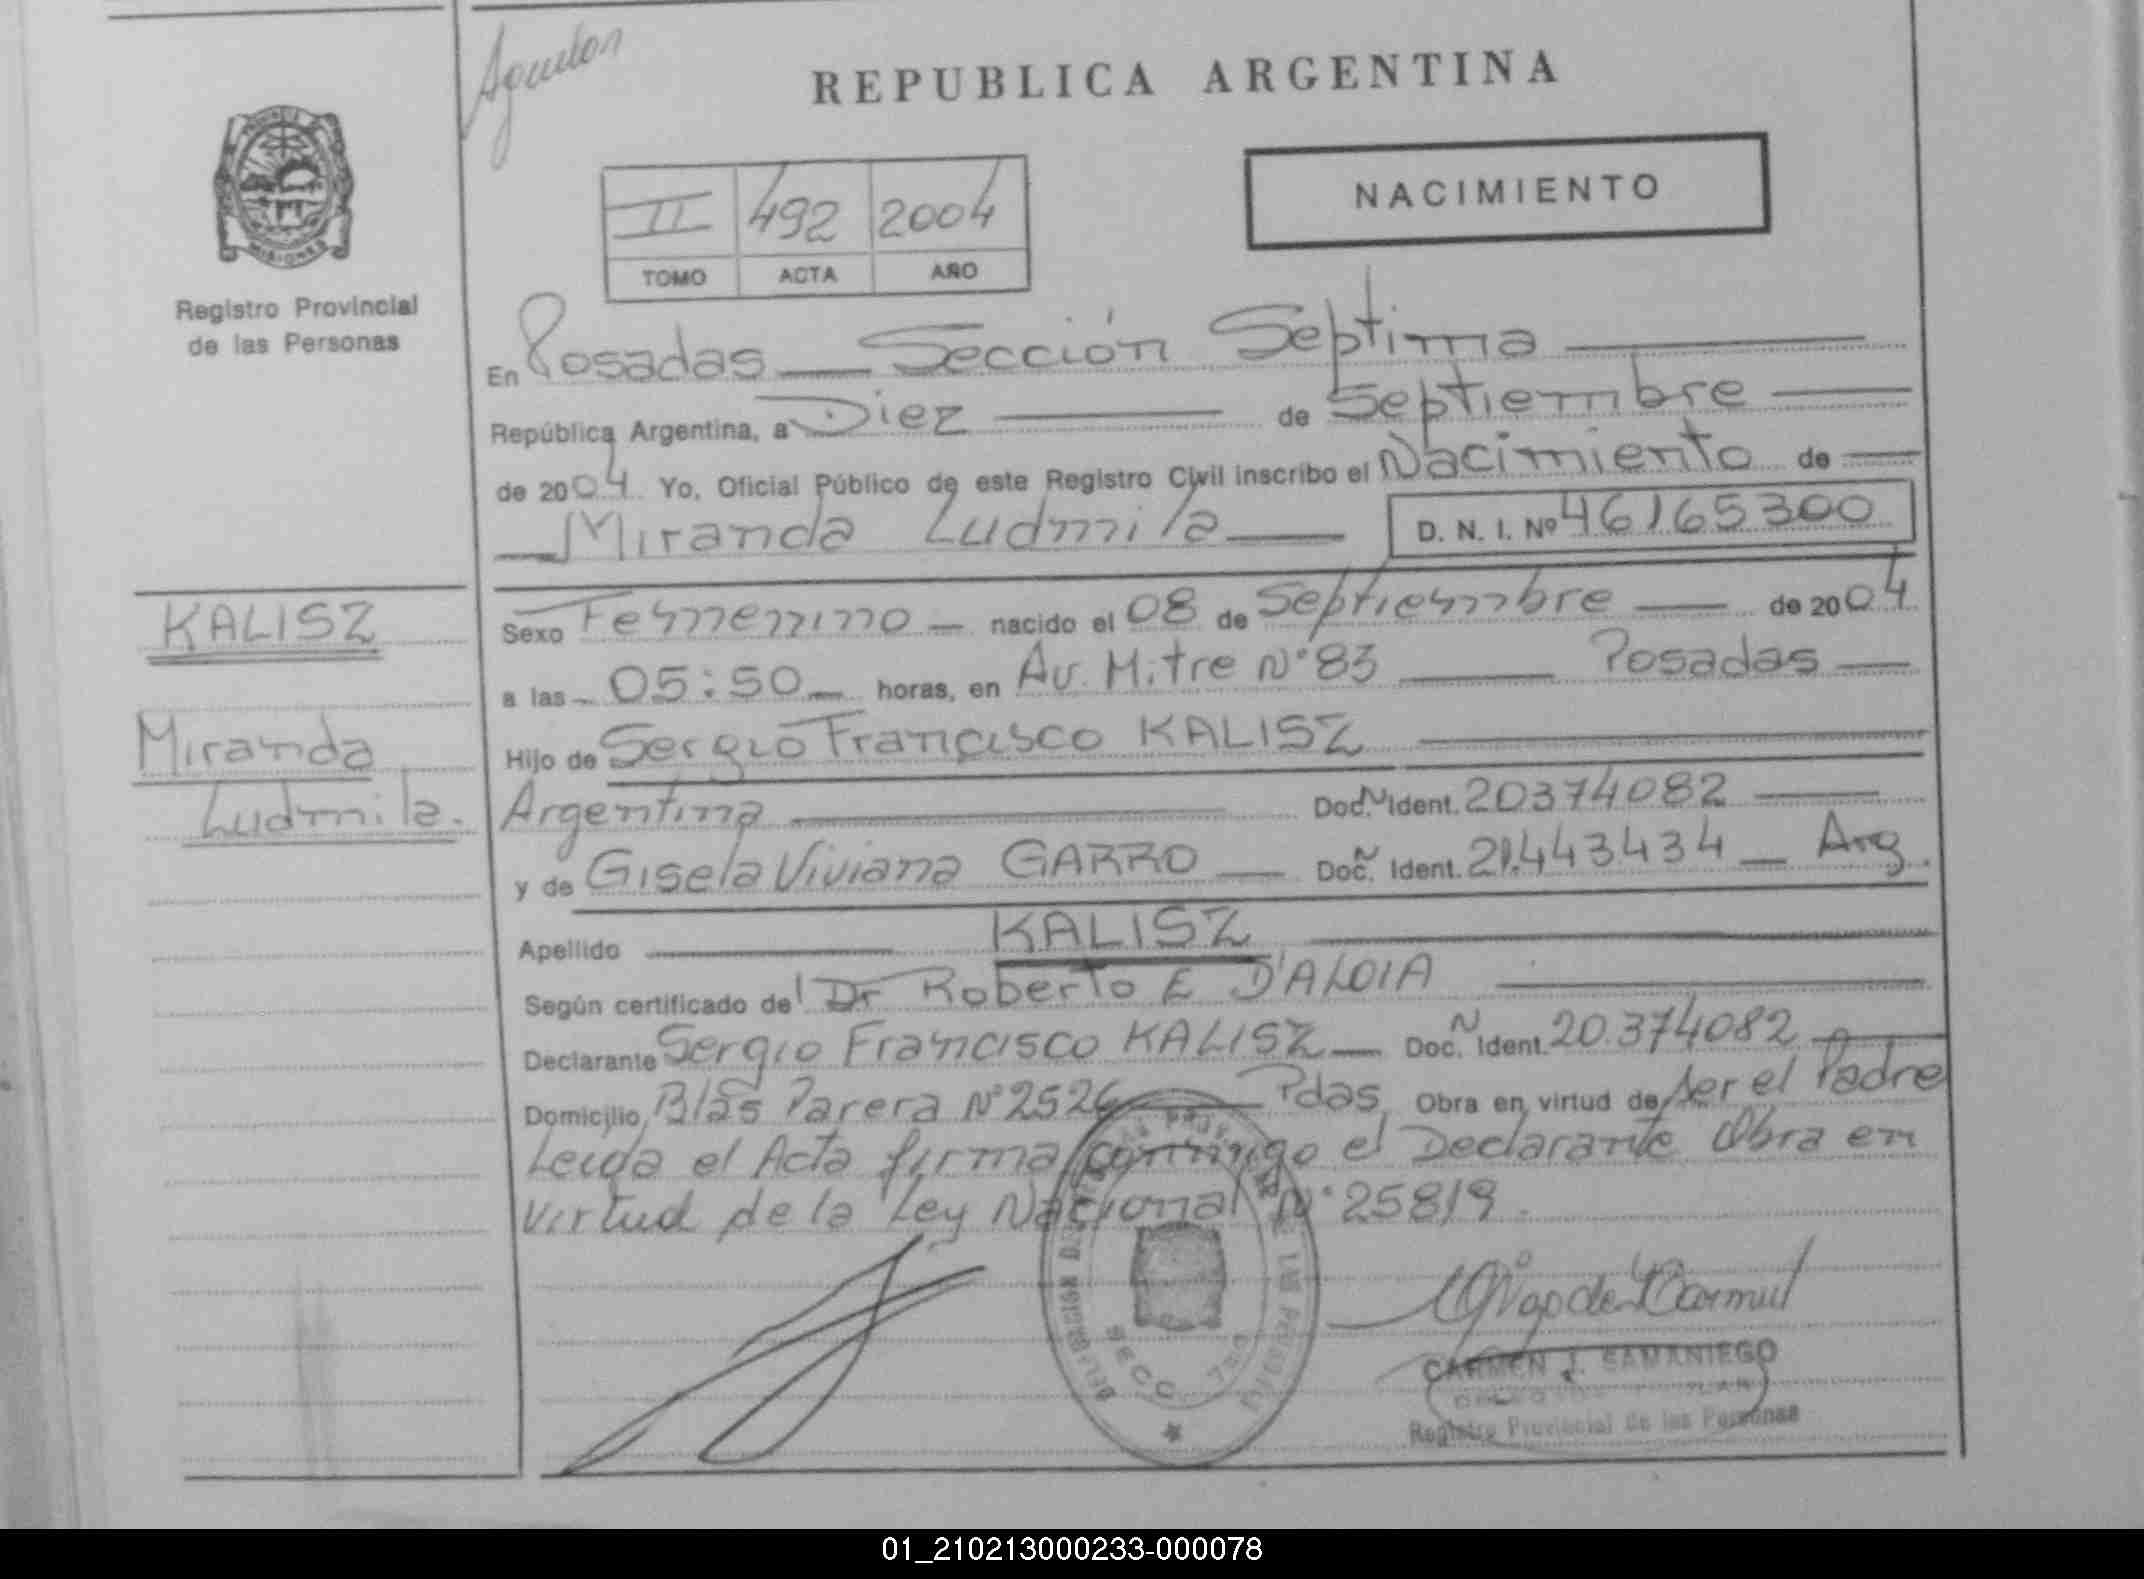 REPUBLICA ARGENTINA
NACIMIENTO
II 492 2004
TOMO ACTA AÑO
MISIONES
Registro Provincial
de las Personas
En Posadas — Sección Septima —
República Argentina, a Diez — de Septiembre —
de 2004 Yo, Oficial Público de este Registro Civil inscribo el Nacimiento de —
— Miranda Ludmila — D. N. I. Nº 46165300
KALISZ
Miranda
Ludmila.
Sexo Femenino — nacido el 08 de Septiembre — de 2004
a las 05:50 — horas, en Av. Mitre Nº 83 — Posadas —
Hijo de Sergio Francisco KALISZ —
Argentina — Doc. N Ident. 20374082 —
y de Gisela Viviana GARRO — Doc. N Ident. 21.443434 — Arg.
Apellido — KALISZ —
Según certificado del Dr Roberto E D'ALOIA —
Declarante Sergio Francisco KALISZ — Doc. N Ident. 20.374082 —
Domicilio Blas Parera Nº 2526 — Pdas, Obra en virtud de ser el Padre
Leida el Acta firma conmigo el Declarante Obra en
virtud de la Ley Nacional Nº 25819.
SECC. 7ma
CARMEN J. SAMANIEGO
Registro Provincial de las Personas
01_210213000233-000078